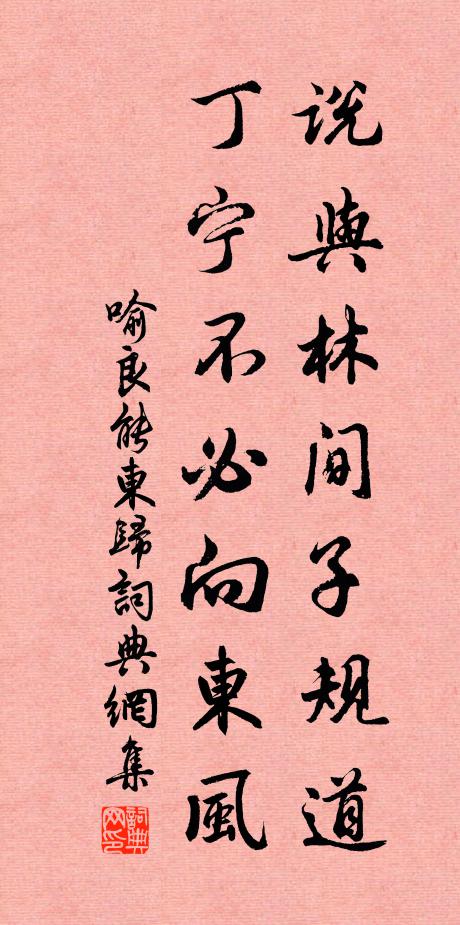 説與林間子規道
丁宁不必向東風
喻良能東歸詞典網集
詞典網印